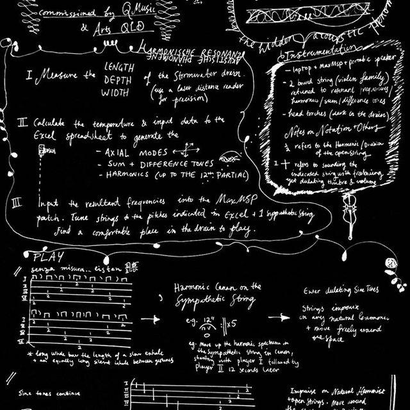 commissioned by QMusic
& Arts QLD
the hidden acoustic
HARMONISCHE RESONANZ
I. Measure the LENGTH
DEPTH
WIDTH
of the Stormwater drain.
(use a laser distance reader
for precision)
II Calculate the temperature & input data to the
Excel spreadsheet to generate the
- AXIAL MODES
- SUM + DIFFERENCE TONES
- HARMONICS (UP TO THE 12TH PARTIAL)
III Input the resultant frequencies into the Max MSP
patch. Tune strings to the pitches indicated in Excel + 1 sympathetic string
Find a comfortable place in the drain to play.
Instrumentation
- laptop + maxmsp + portable speaker
- 2 bowed string (violin family)
retuned to relevant frequencies
harmonics/sum/difference tones
- head torches (dark in the drains)
Notes on Notation + Others
refers to the Harmonic Division
of the open string
refers to sounding the
indicated string with
PLAY
senza misura..
* long winds bow the length of a slow exhale
+ an equally long silence winds between gestures
Harmonic Canon on the
Sympathetic String
e.g. 12"
x5
eg. move up the harmonic spectrum on
the sympathetic string in canon,
starting with player I followed by
player II 12 seconds later
Ever deleting Sine Tones
Strings improvise
on axis natural harmonics
+ move freely around
the space
Sine tones continue
Improvise on Natural Harmonics
+ open strings - move around